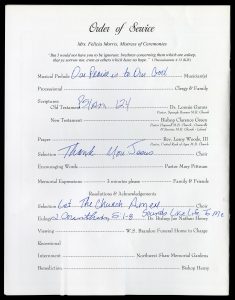 Order of Service
Mrs. Felicia Morris, Mistress of Ceremonies
"But I would not have you to be ignorant, brethren concerning them which are asleep,
that ye sorrow not, even as others which have no hope." I Thessalonians 4:13 KJV
Musical Prelude Our Praise is to Our God Musician(s)
Processional Clergy & Family
Scriptures
Old Testament Psalm 124 Dr. Lonnie
Pastor,
New Testament Bishop Clarence Green
Pastor
Prayer Rev. Leroy Woods, III
Pastor
Selection Thank You Jesus Choir
Encouraging Words Pastor Mary Pittman
Memorial Expressions 3 minutes please Family & Friends
Resolutions & Acknowledgements
Selection Let The Church Amen Choir
Eulogy 2 Corinthians 5:1-8 Sounds Like Life To Me Bishop Nathan Henry
Viewing W.S. Brandon Funeral Home in Charge
Recessional
Interment Northwest Memorial Gardens
Benediction Bishop Henry